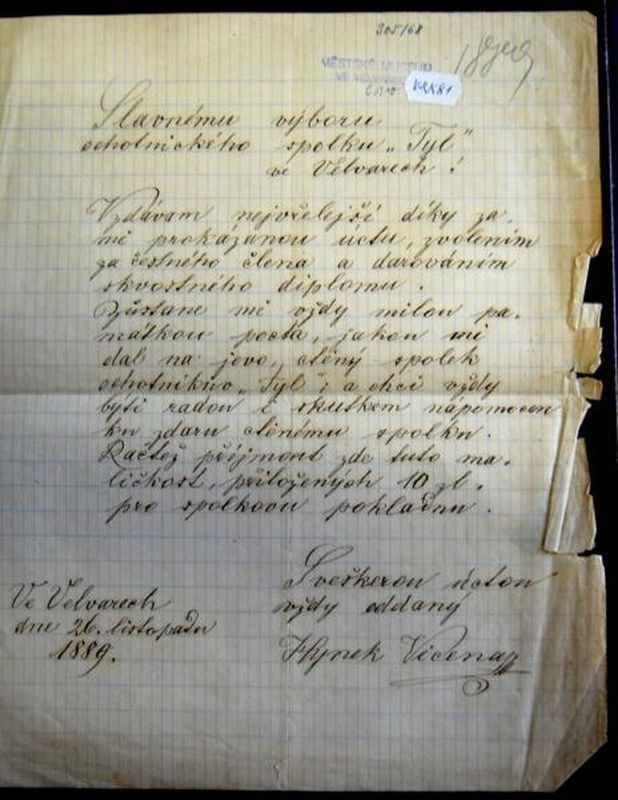 305/68
MĚSTSKÉ MUSEUM
VE VELVARECH
VKK81
Slavnému výboru
ochotnického spolku „Tyl“
ve Velvarech!
Vzdávám nejvřelejší díky za
mě prokázanou úctu, zvolením
za čestného člena a darováním
skvostného diplomu.
Zůstane mi vždy milou pa-
mátkou pocta, jakou mi
dal na jevo, ctěný spolek
ochotníkův „Tyl“; a chci vždy
býti radou i skutkem nápomocen
ku zdaru ctěnému spolku.
Račtež přijmout zde tuto ma-
ličkost, přiložených 10 zl.
pro spolkovou pokladnu.
S veškerou úctou
vždy oddaný
Hynek Vicena
Ve Velvarech
dne 26. listopadu
1889.